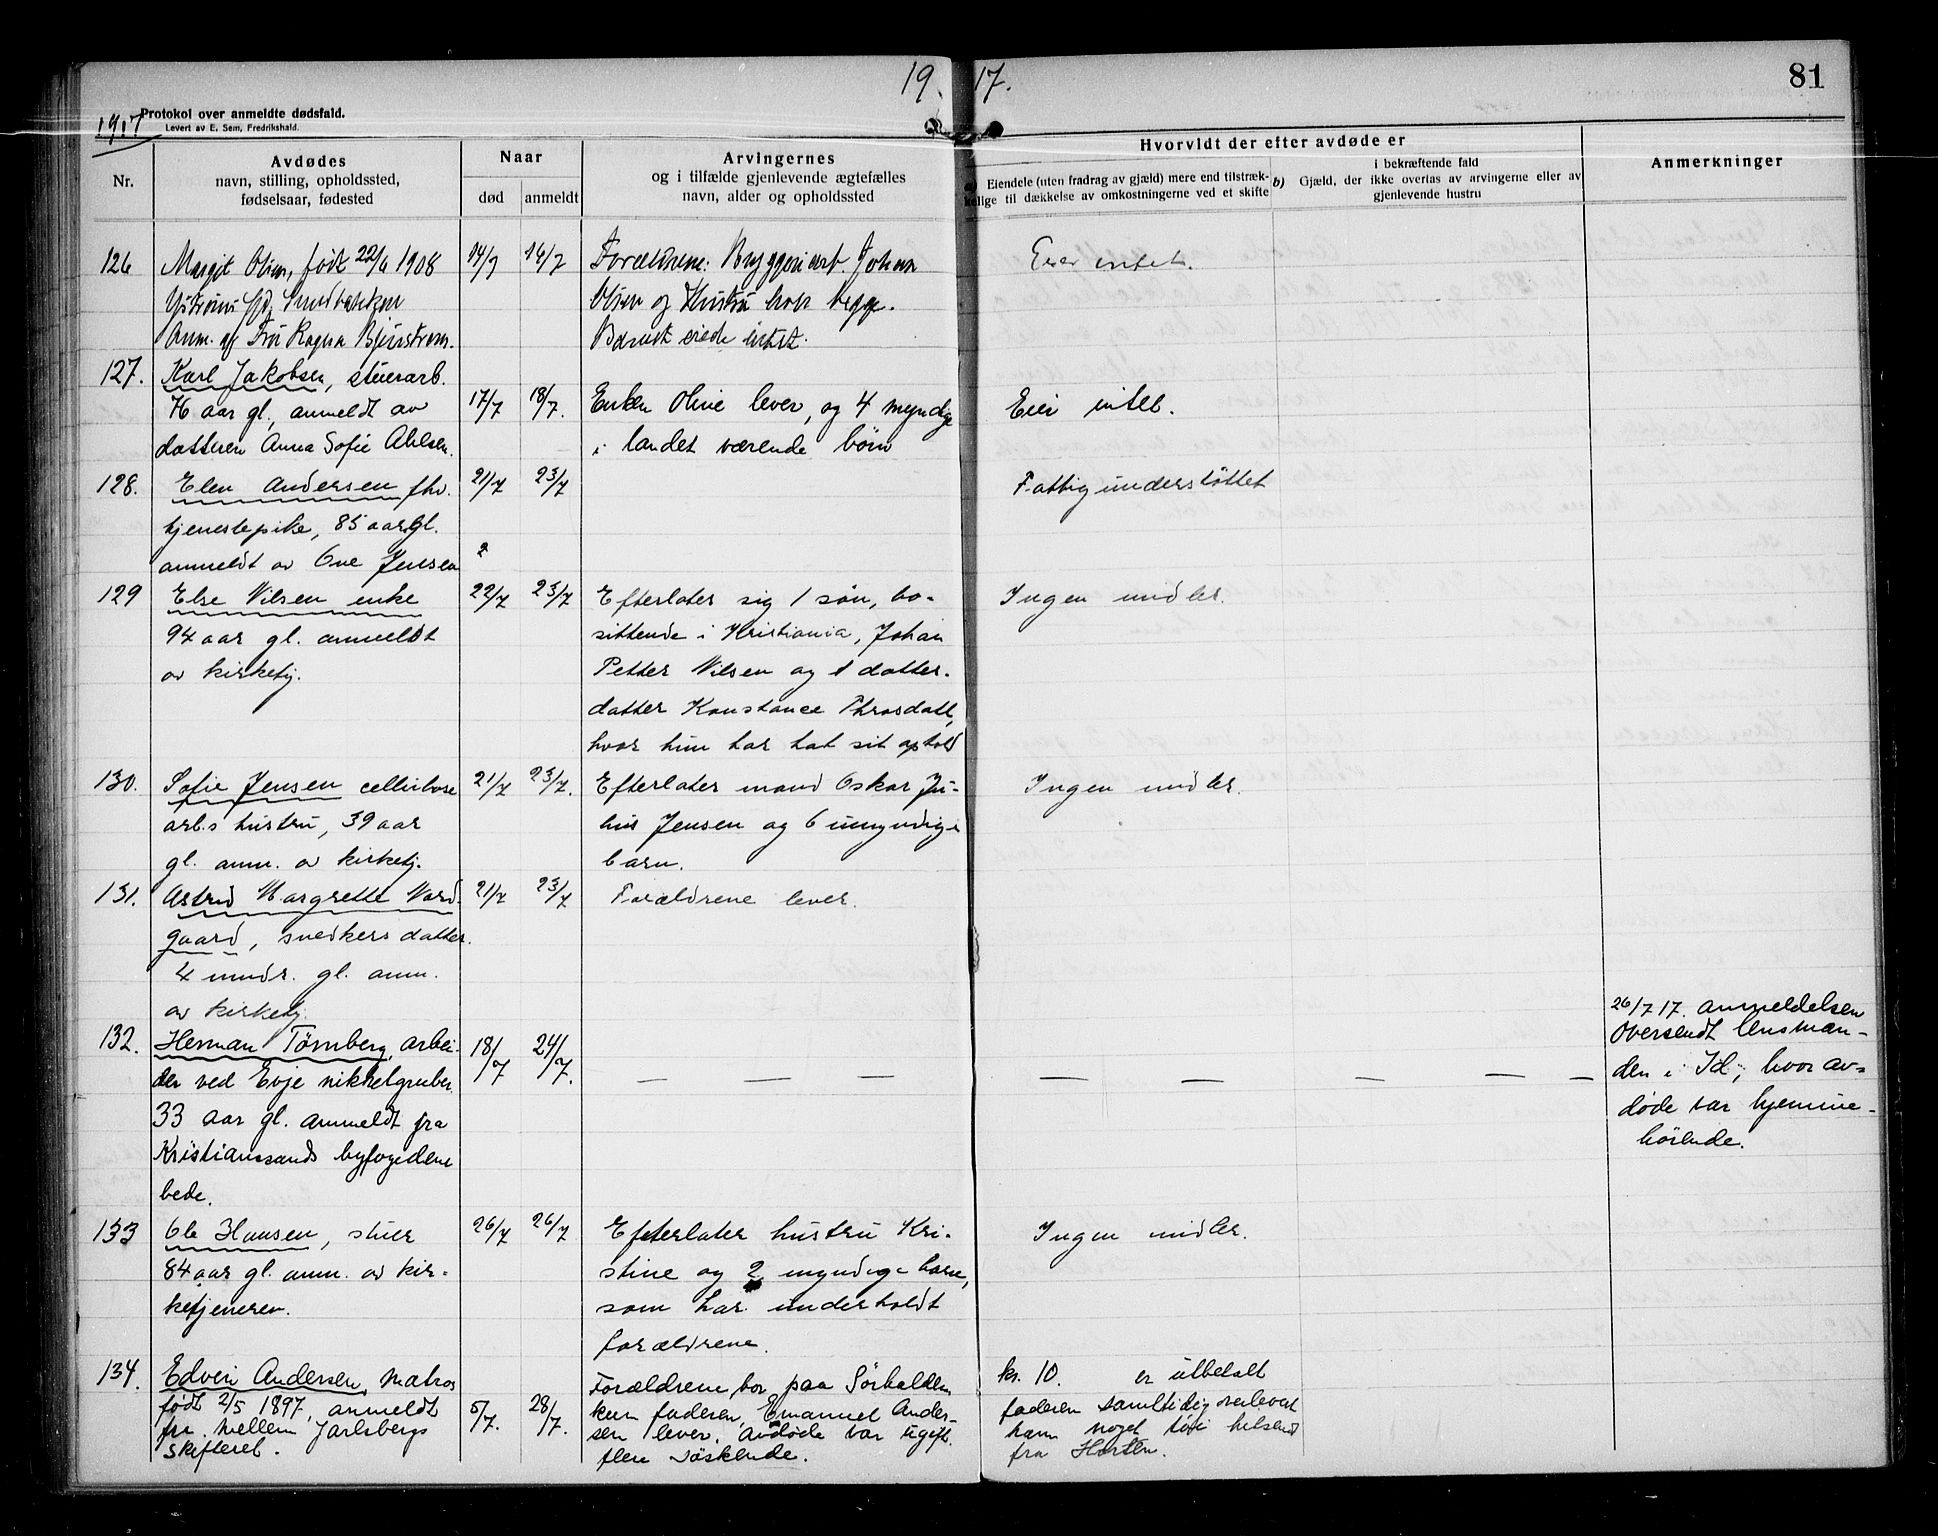 19 17. 81
1917
Protokol over anmeldte dødsfald.
Levert av E. Sem, Fredrikshald.
Nr.
Avdødes
navn, stilling, opholdssted,
fødselsaar, fødested
Naar
død
anmeldt
Arvingernes
og i tilfælde gjenlevende ægtefælles
navn, alder og opholdssted
Hvorvidt der efter avdøde er
Eiendele (uten fradrag av gjæld) mere end tilstræk-
kelige til dækkelse av omkostningerne ved et skifte
b)
i bekræftende fald
Gjæld, der ikke overtas av arvingerne eller av
gjenlevende hustru
Anmerkninger
126 Margit Olsen, født 22/6 1908 14/7 14/7 Forældrene: Bryggeriarb. Johan Eier intet.
Olsen og Hustru bor begge.
Anm. af Fru Ragna Bjurstrøm. Barnet eiede intet.
127. Karl Jakobsen, stuerarb.
76 aar gl., anmeldt av 17/7 18/7. Enken Oline lever, og 4 myndige Eier intet.
datteren Anna Sofie Ahlsen. i landet værende børn
128. Elen Andersen fhv. 21/7 23/7 Fattigunderstøttet
tjenestepike, 85 aar gl.
anmeldt av Ove Jensen
129 Else Nilsen enke 22/7 23/7 Efterlater sig 1 søn, bo- Ingen midler.
94 aar gl. anmeldt sittende i Kristiania, Johan
av kirketj. Petter Nilsen og 1 datter-
datter Konstance
hvor hun har hat sit ophold
130. Sofie Jensen cellulose 21/7 23/7. Efterlater mand Oskar Ju- Ingen midler.
arb.s hustru, 39 aar lius Jensen og 6 umyndige
gl. anm. av kirketj. barn.
131. Astrid Margrethe Nord- 21/7 23/7 Forældrene lever.
gaard, snedkers datter.
4 mndr. gl. anm.
av kirketj.
132. Herman Törnberg, arbei- 18/7 24/7. — — — — — — — —
der ved Evje nikkelgruber.
33 aar gl. anmeldt fra
Kristianssands byfogedem-
bede.
26/7 17. Anmeldelsen
oversendt lensman-
den i Id, hvor av-
døde var hjemme-
hörende.
133 Ole Hansen, stuer 26/7 26/7 Efterlater hustru Kri- Ingen midler.
84 aar gl. anm. av kir- stine og 2 myndige barn,
ketjeneren. som har underholdt
forældrene.
134. Edvin Andersen, matros Forældrene bor paa Sørhalden kr. 10. er utbetalt
født 2/5 1897, anmeldt 5/7. 28/7. kun faderen, Emanuel Ander- faderen samtidig overlevert
fra mellem Jarlsbergs sen lever. Avdøde var ugift. ham noget töi
skifteret. flere söskende. fra Horten.